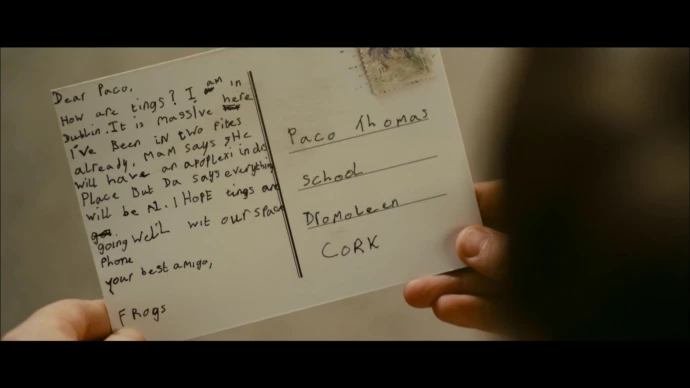 Dear Paco,
How are tings? I am in
Dublin. It is massive
I've been in two fites
already. Mam says she
will have an apoplexi in do
Place but Da says everything
will be A1. I HOPE tings are
going well wit our space
Phone
your best amigo,
Frogs
Paco Thomas
School
Dromoleen
CORK